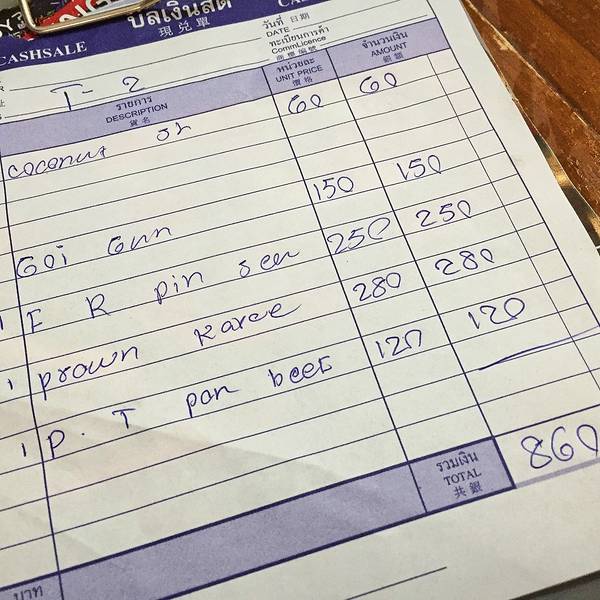 บิลเงินสด
CASHSALE
現兌單
วันที่ 日期
DATE
ทะเบียนการค้า
CommLicence
商業編號
T-2
รายการ
DESCRIPTION
貨名
หน่วยละ
UNIT PRICE
價格
จำนวนเงิน
AMOUNT
銀額
coconut sh 60 60
Goi Gun 150 150
1 F R pin seen 250 250
1 prown karee 280 280
1 P. T pan beef 120 120
บาท
รวมเงิน
TOTAL
共銀
860